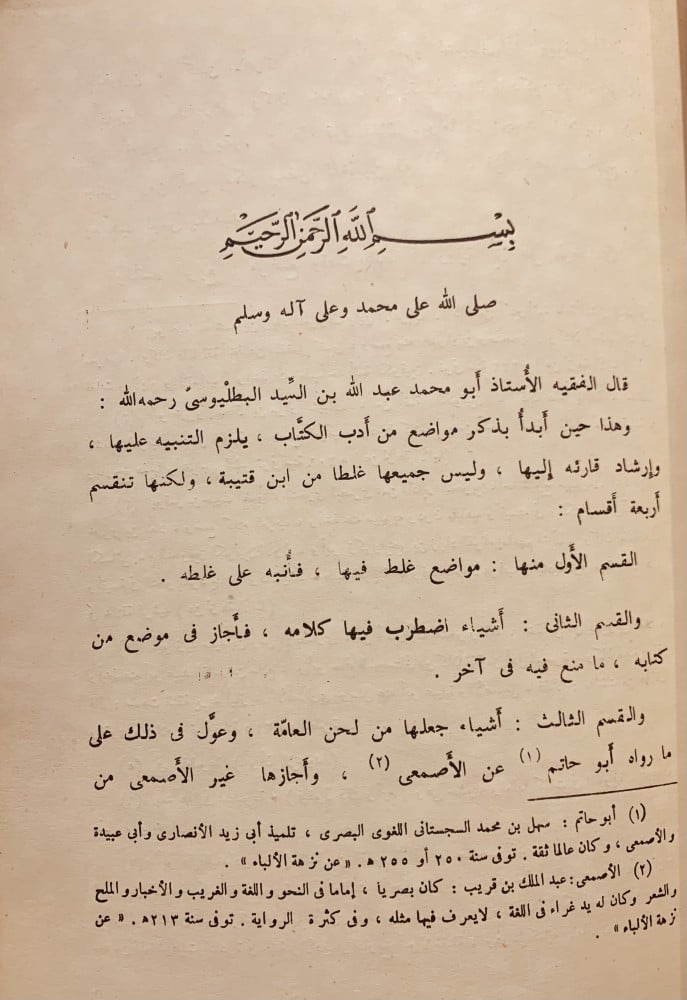 بِسْمِ اللَّهِ الرَّحْمَنِ الرَّحِيمِ
صلى الله على محمد وعلى آله وسلم
قال الفقيه الأُستاذ أَبو محمد عبد الله بن السِّيد البطلْيوسىّ رحمه الله :
وهذا حين أَبدأُ بذكر مواضع من أَدب الكتَّاب ، يلزم التنبيه عليها ،
وإرشاد قارئه إليها ، وليس جميعها غلطا من ابن قتيبة ، ولكنها تنقسم
أَربعة أَقسام :
القسم الأَول منها : مواضع غلط فيها ، فأُنبه على غلطه .
والقسم الثانى : أَشياء اضطرب فيها كلامه ، فأَجاز فى موضع من
كتابه ، ما منع فيه فى آخر .
والقسم الثالث : أَشياء جعلها من لحن العامّة ، وعوَّل فى ذلك على
ما رواه أَبو حاتم (١) عن الأَصمعى (٢) ، وأَجازها غير الأَصمعى من
(١) أبو حاتم : سهل بن محمد السجستانى اللغوى البصرى ، تلميذ أبى زيد الأنصارى وأبى عبيدة
والأصمعى ، وكان عالما ثقة . توفى سنة ٢٥٠ أو ٢٥٥ ه . « عن نزهة الألباء » .
(٢) الأصمعى : عبد الملك بن قريب : كان بصريا ، إماما فى النحو واللغة والغريب والأخبار والملح
والشعر وكان له يد غراء فى اللغة ، لا يعرف فيها مثله ، وفى كثرة الرواية . توفى سنة ٢١٣ه . « عن
نزهة الألباء » .